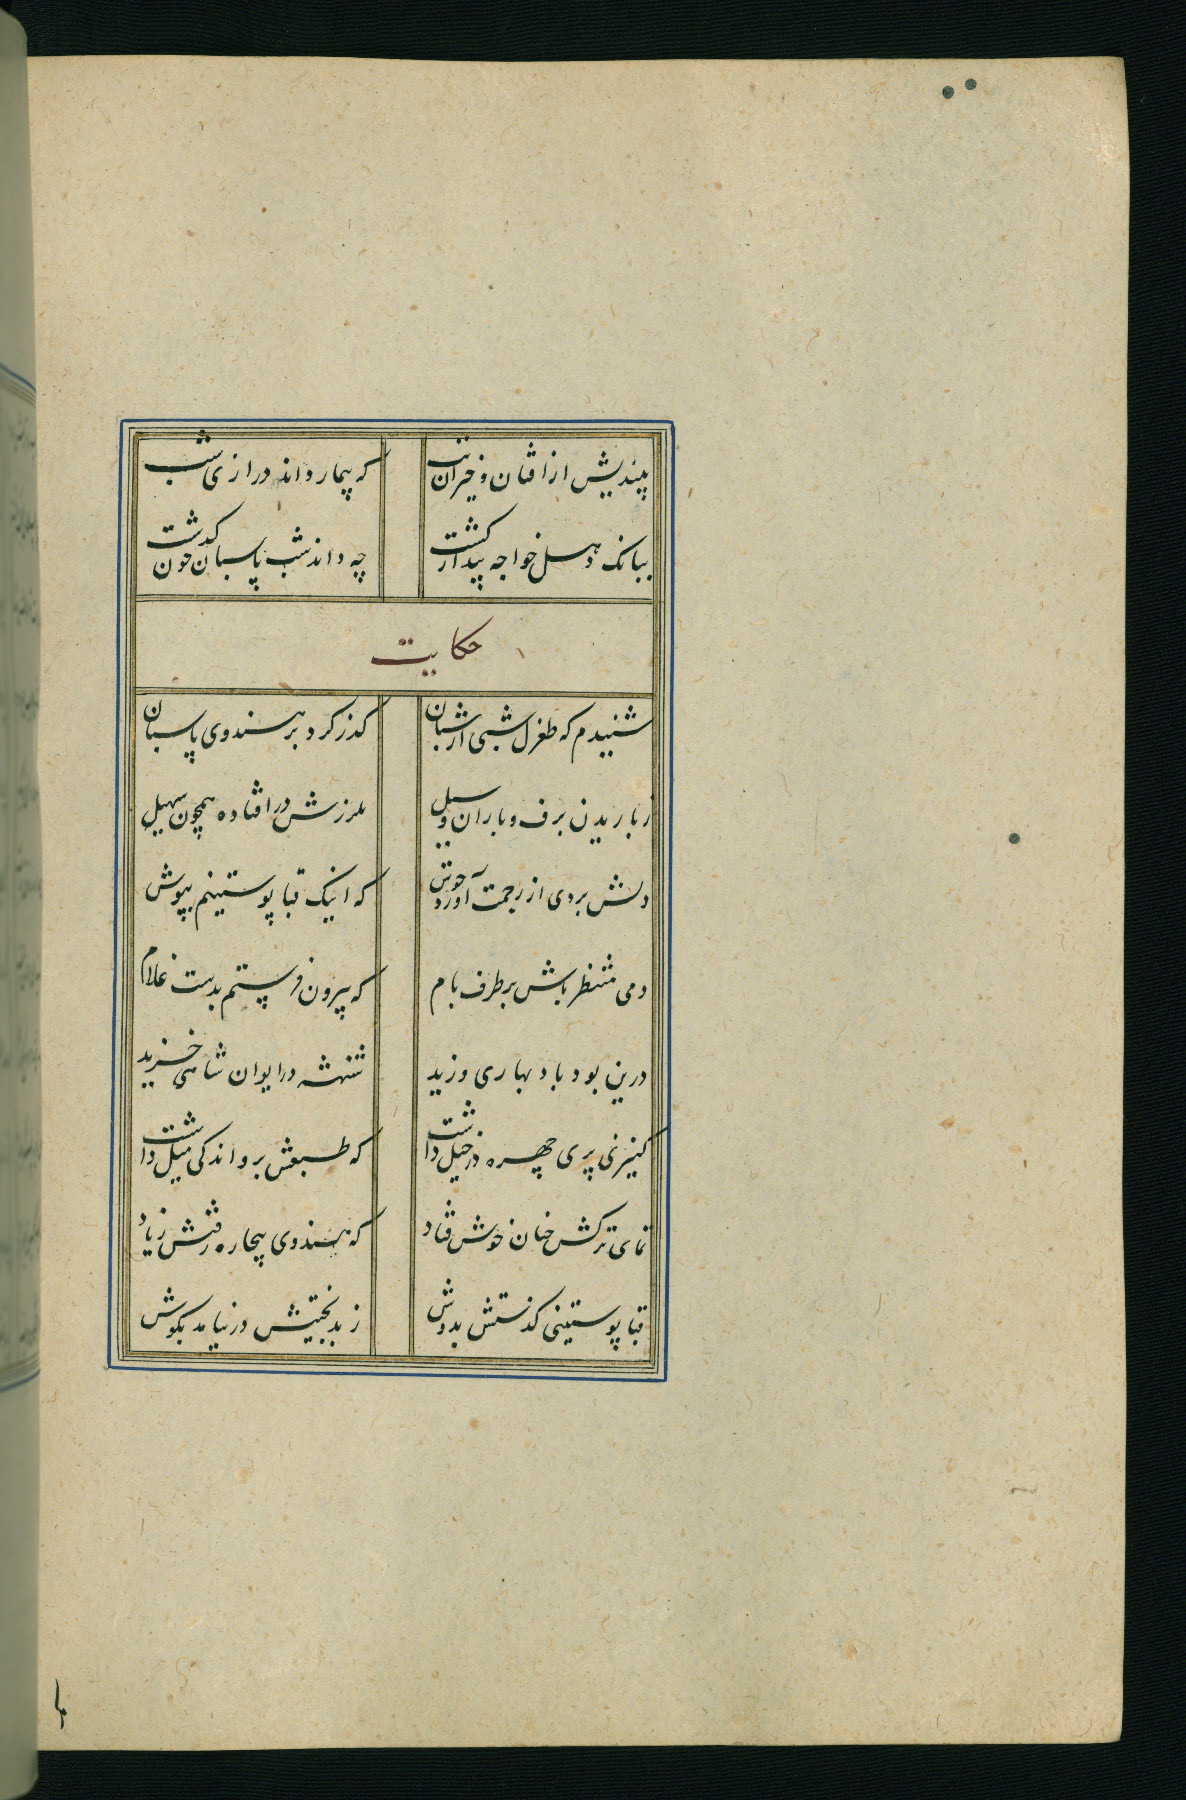 بیندیش از افتان و خیزان تب که بیمار داند درازی شب
ببانک دهل خواجه بیدار کشت چه داند شب پاسبان چون کذشت
حکایت
شنیدم که طغرل شبی از شبان کذر کرد بر هندوی پاسبان
ز باریدن برف و باران و سیل بلرزش در افتاده همچون سهیل
دلش بروی از رحمت آورد جوش که اینک قبا پوستینم بپوش
دمی منتظر باش بر طرف بام که بیرون فرستم بدست غلام
درین بود باد بهاری وزید شنهشه در ایوان شاهی خزید
کنیزی پری چهره در خیل داشت که طبعش برو اندکی میل داشت
تماشای ترکش چنان خوش فتاد که هندوی بیچاره رفتش ز یاد
قبا پوستینی کذشتش بدوش ز بدبختیش در نیامد بکوش